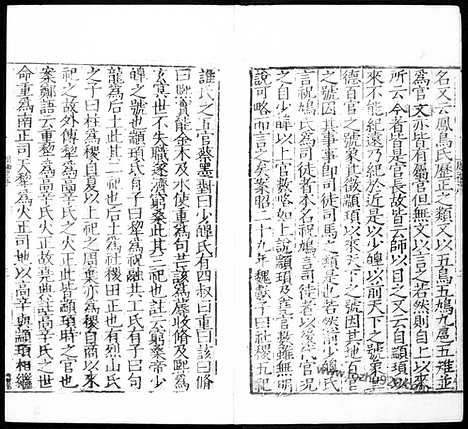 名又云鳳鳥氏歷正之類又以五鳥五鳩九扈五雉並
為官長亦皆有屬官但無文以言之若然則自上以來
所云官者皆是官長故皆云師以目之又云自顓頊以
來不能紀遠乃紀於近是以少皞以前天下之號象其
德百官之號象其徵顓頊以來天下之號因其地百官
之號因其事事即司徒司馬之類是也若前少皞氏
言祝鳩氏為司徒者本名祝鳩言司徒者以後代官況
之自少皞以上官數略如上說顓頊及堯官數雖無明
說可略而言之矣案昭二十九年魏獻子曰社稷五祀
誰氏之五官蔡墨對曰少皞氏有四叔曰重曰該曰脩
曰熙實能金木及水使重為句芒該為蓐收脩及熙為
玄冥世不失職遂濟窮桑此其三祀也注云窮桑帝少
皞之號也顓頊氏有子曰犂為祝融共工氏有子曰句
龍為后土此其二祀也后土為社稷田正也有烈山氏
之子曰柱為稷自夏以上祀之周棄亦為稷自商以來
祀之故外傳犂為高辛氏之火正此皆顓頊時之官也
案鄭語云重犂為高辛氏火正故堯典注高辛氏之世
命重為南正司天犂為火正司地以高辛與顓頊相繼